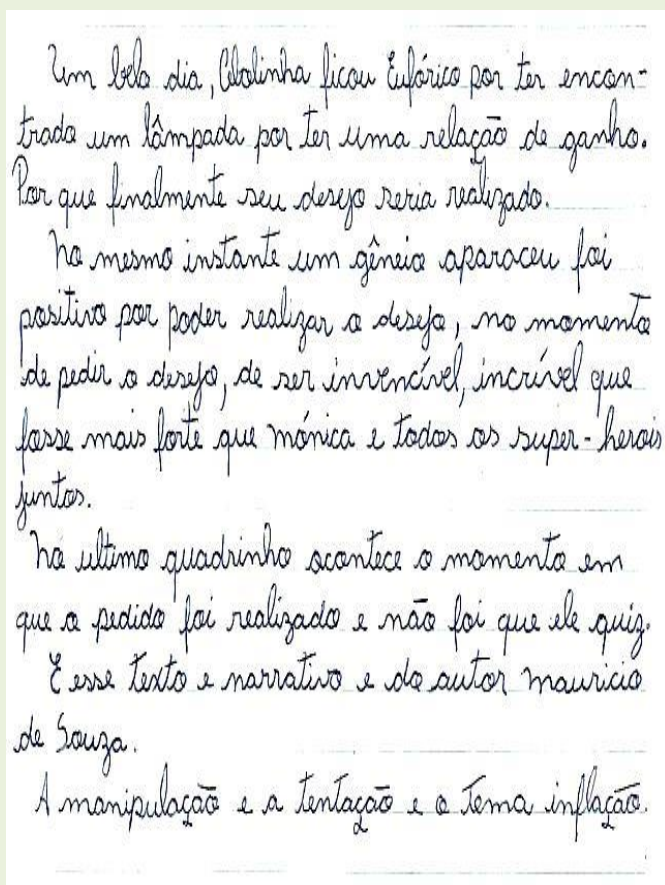 Um belo dia, Cebolinha ficou Eufórico por ter encon-
trado um lâmpada por ter uma relação de ganho.
Por que finalmente seu desejo seria realizado.
No mesmo instante um gêneio aparaceu foi
positivo por poder realizar o desejo, no momento
de pedir o desejo, de ser invencível, incrível que
fosse mais forte que mónica e todos os super-herois
juntos.
No ultimo quadrinho acontece o momento em
que o pedido foi realizado e não foi que ele quiz.
E esse texto e narrativo e do autor mauricio
de Souza.
A manipulação e a tentação e o tema inflação.